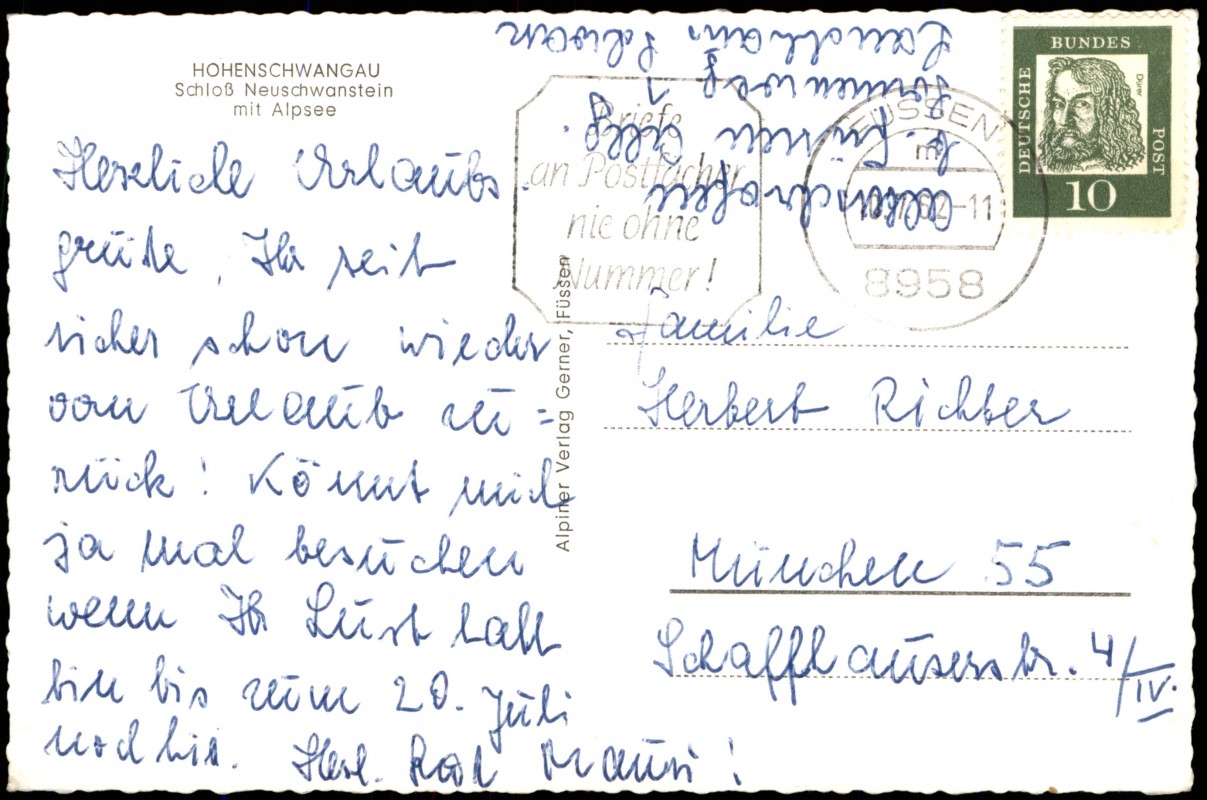 HOHENSCHWANGAU
Schloß Neuschwanstein
mit Alpsee
Herzliche Urlaubs-
grüße, Ihr seit
sicher schon wieder
vom Urlaub zu=
rück! Könnt mich
ja mal besuchen
wenn Ihr Lust habt
bin bis zum 20. Juli
noch hier. Herzl.
Alpiner Verlag Gerner, Füssen
Landhaus Schwan
Sonnenweg 1
b. Füssen Allg.
Briefe
an Postfächer
nie ohne
Nummer!
FÜSSEN
m
62-11
8958
DEUTSCHE
BUNDES
POST
Dürer
10
Familie
Herbert Richter
München 55
Schaffhauserstr. 4/IV.